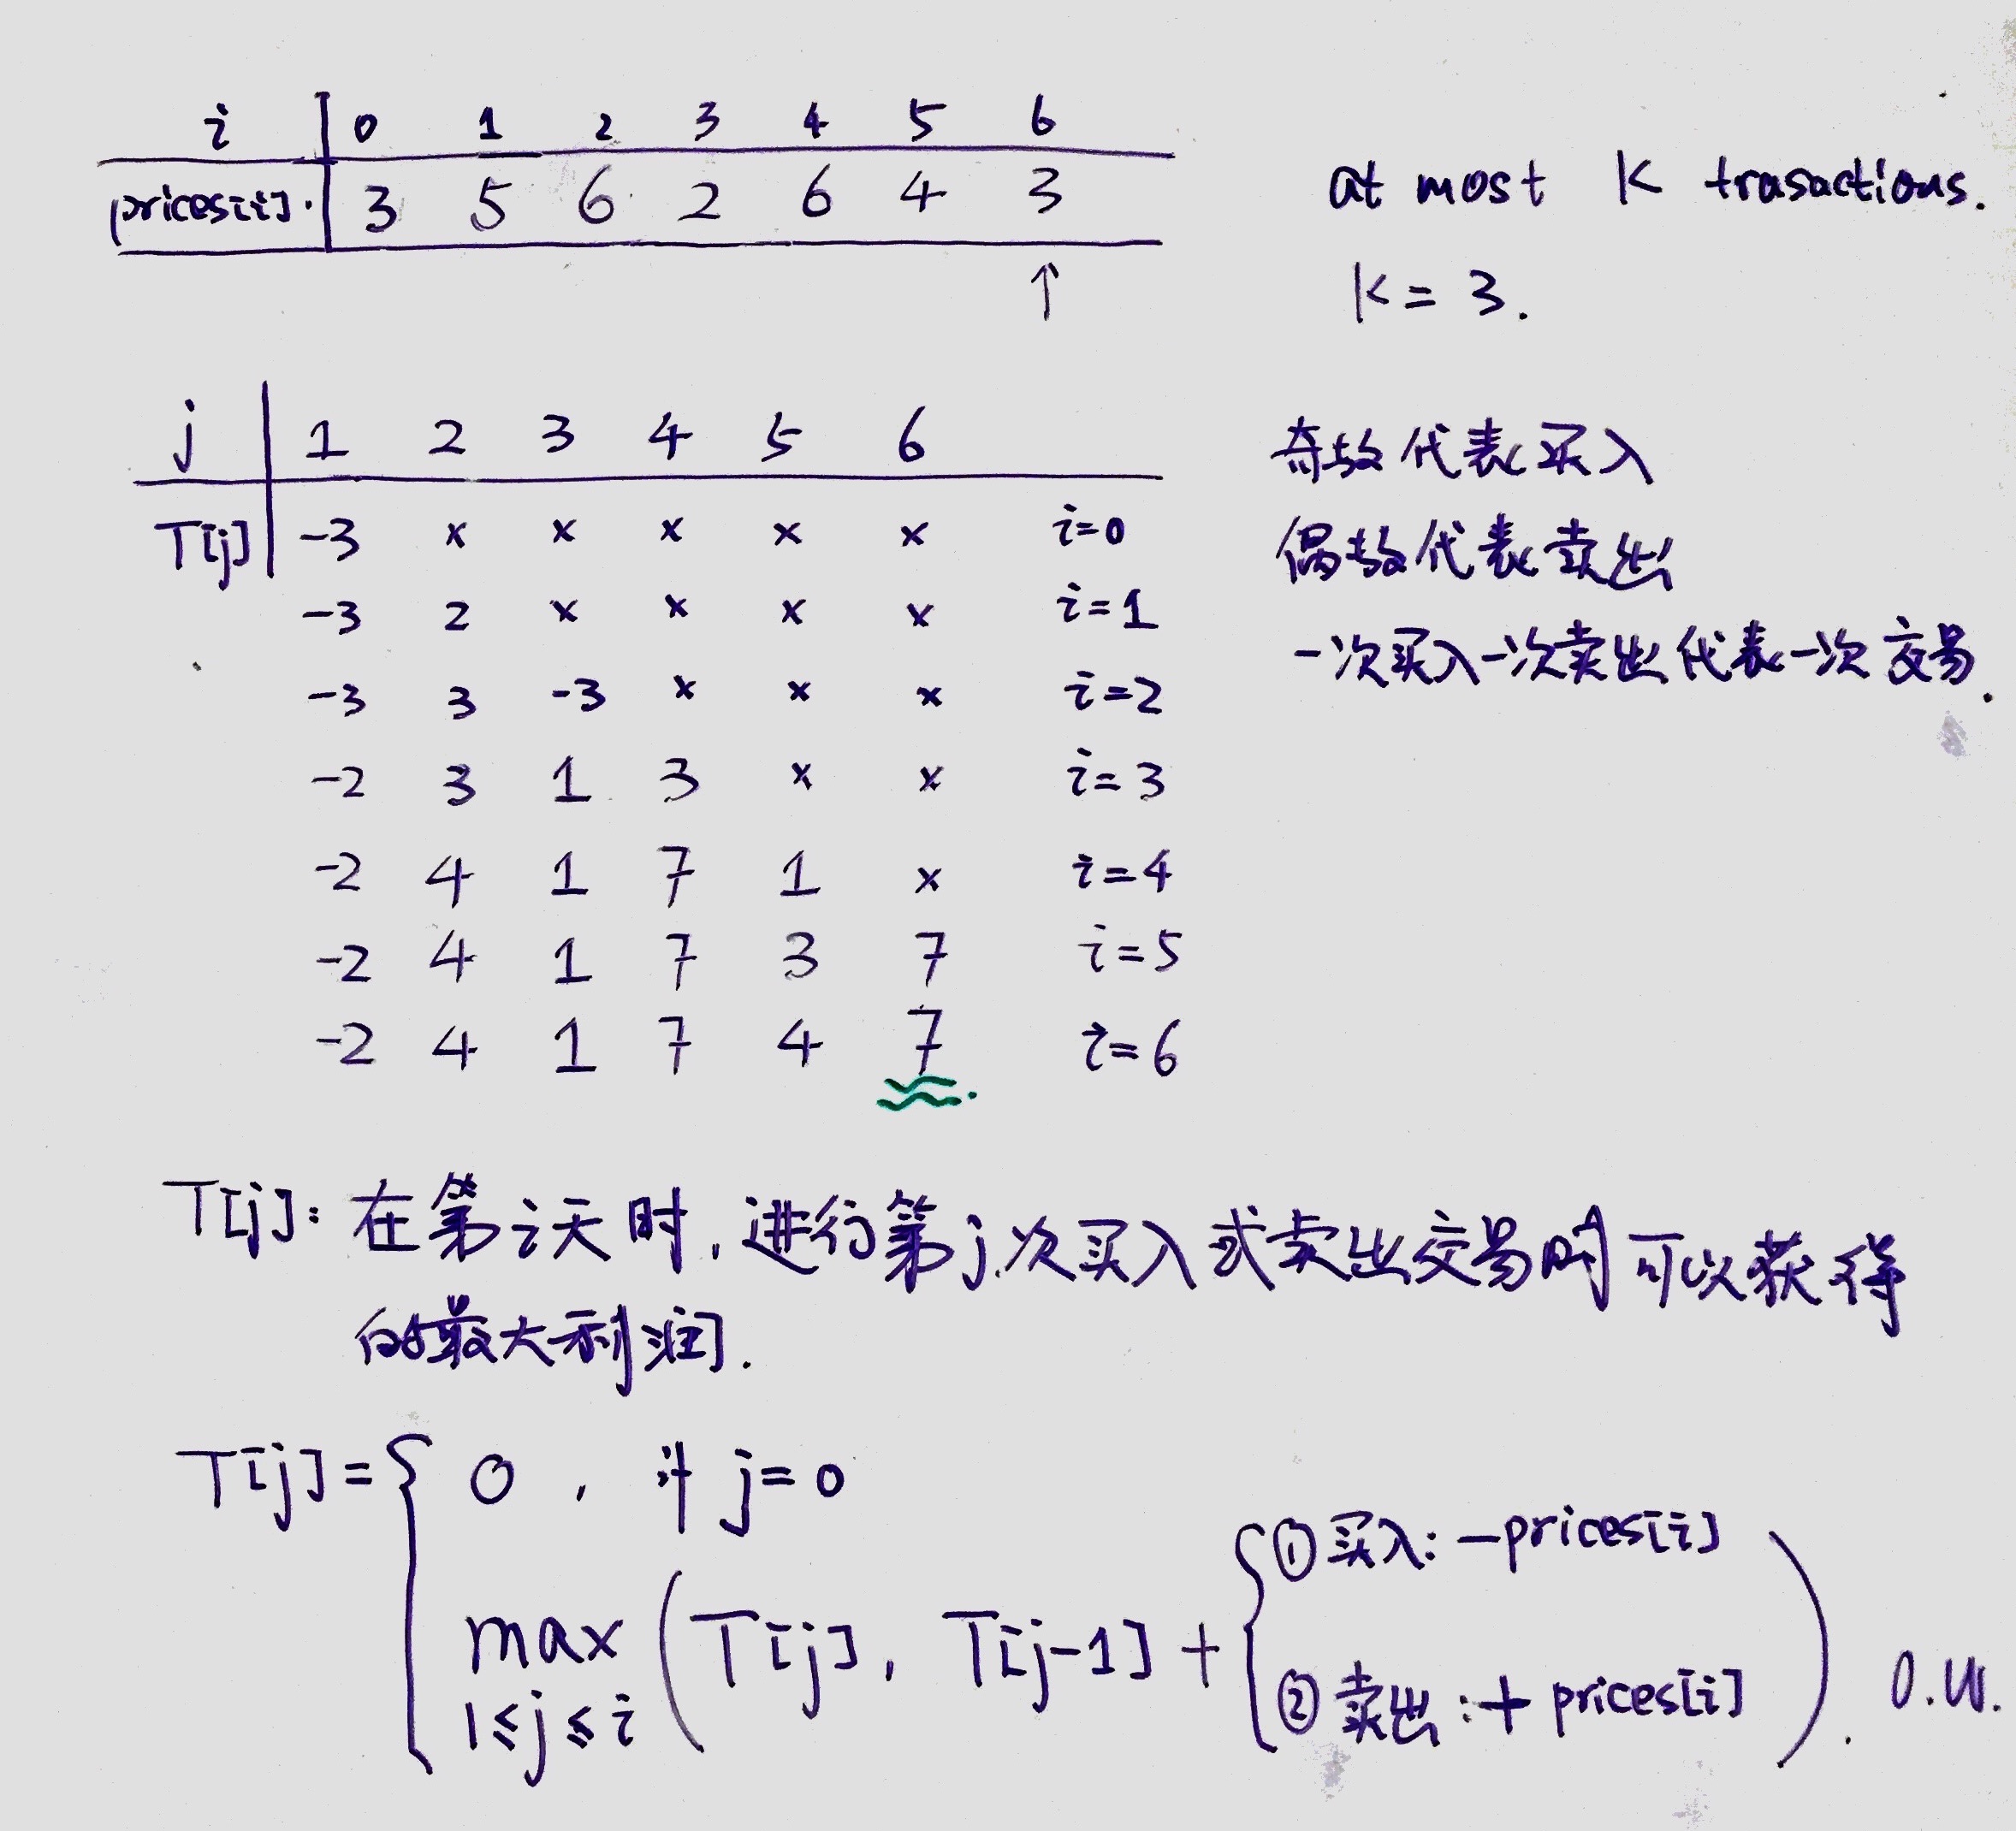 i 0 1 2 3 4 5 6
prices[i]. 3 5 6 2 6 4 3
↑
at most K trasactions.
K = 3.
j 1 2 3 4 5 6
T[j] -3 x x x x x i=0
-3 2 x x x x i=1
-3 3 -3 x x x i=2
-2 3 1 3 x x i=3
-2 4 1 7 1 x i=4
-2 4 1 7 3 7 i=5
-2 4 1 7 4 7 i=6
奇数代表买入
偶数代表卖出
一次买入一次卖出代表一次交易.
T[j]: 在第i天时,进行第j次买入或卖出交易时可以获得
的最大利润.
T[j]= { 0 , if j=0
max ( T[j], T[j-1] + { ①买入: -prices[i]
1≤j≤i ②卖出: + prices[i] ). O.W.